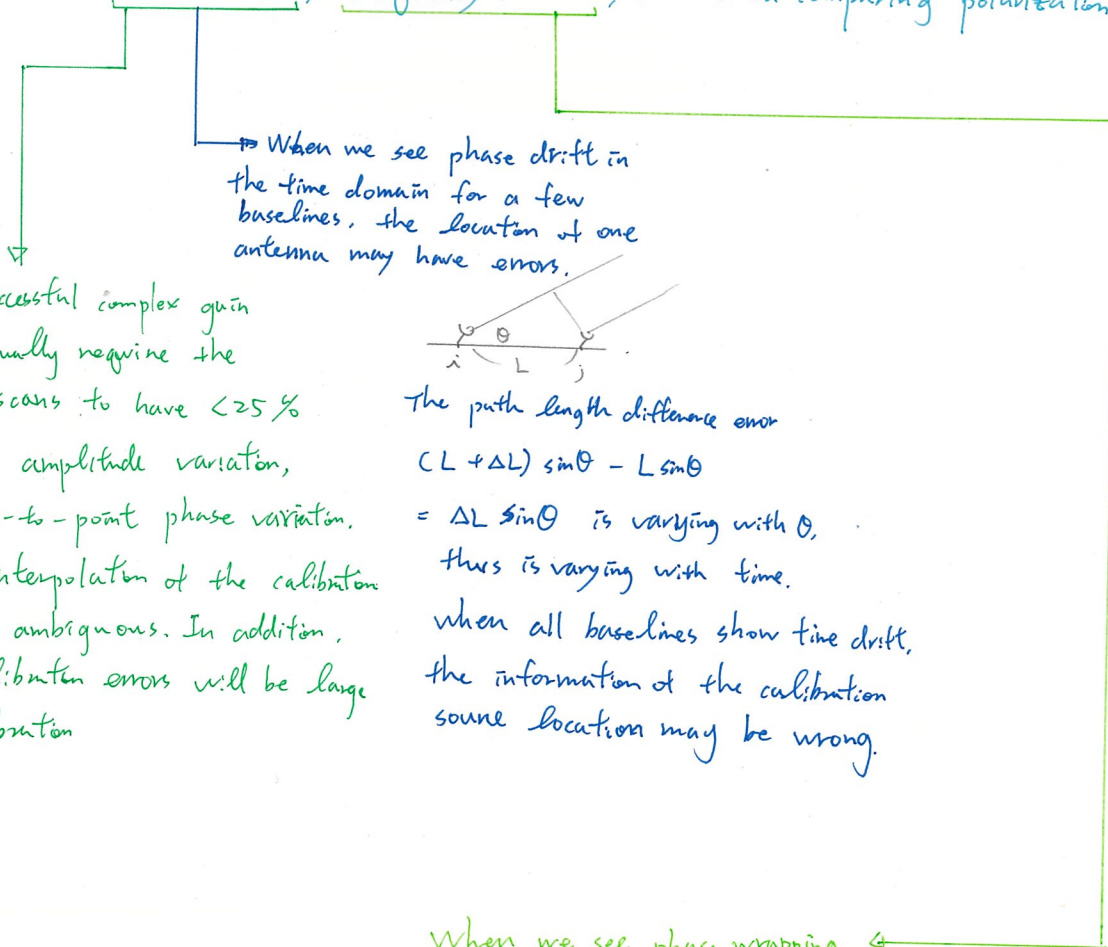 comparing polarization
When we see phase drift in
the time domain for a few
baselines, the location of one
antenna may have errors.
θ
i L j
The path length difference error
(L + ΔL) sinθ - L sinθ
= ΔL sinθ is varying with θ,
thus is varying with time.
when all baselines show time drift,
the information of the calibration
source location may be wrong.
ccessful complex gain
ually require the
scans to have <25%
amplitude variation,
-to-point phase variation.
nterpolation of the calibration
ambiguous. In addition,
libration errors will be large
bration
When we see phase wrapping